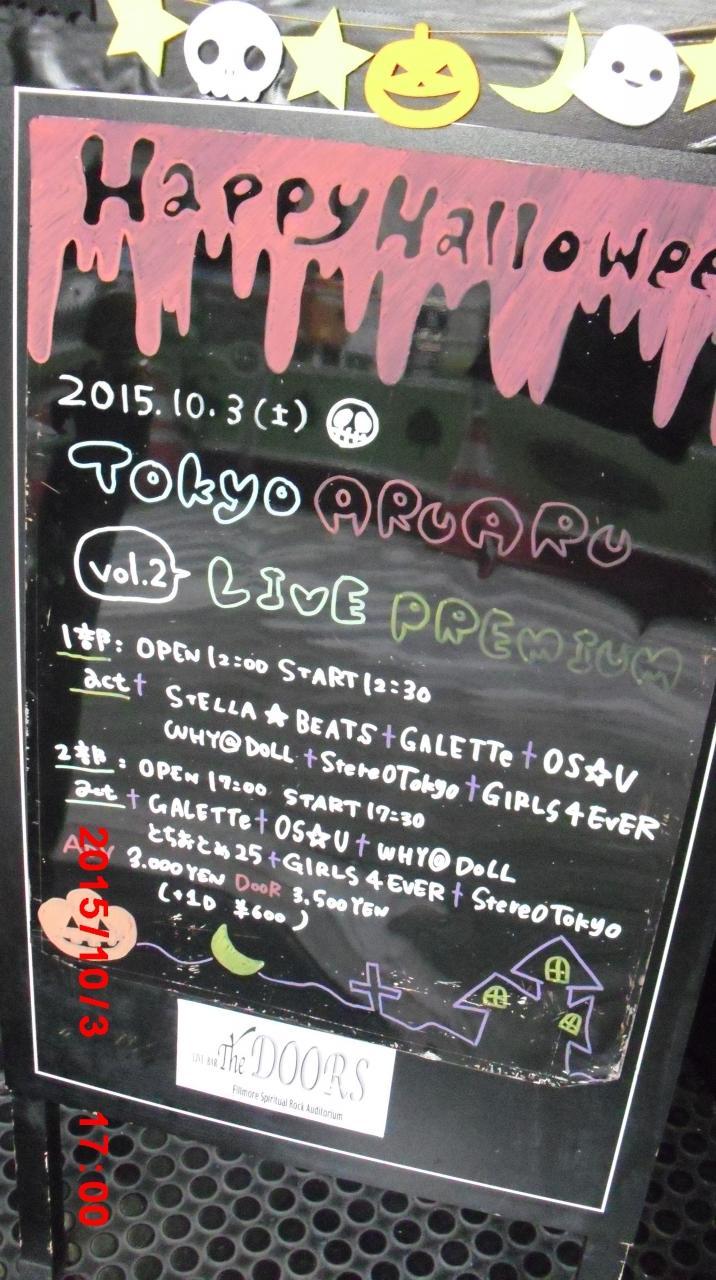 Happy Hallowee
2015.10.3(土)
Tokyo ARUARU
vol.2 LIVE PREMIUM
1部: OPEN 12:00 START 12:30
act† STELLA★BEATS†GALETTe†OS☆U
WHY@DOLL†Stere0Tokyo†GIRLS4EVER
2部: OPEN 17:00 START 17:30
act†GALETTe†OS☆U†WHY@DOLL
とちおとめ25†GIRLS4EVER†Stere0Tokyo
ADV 3.000YEN DOOR 3.500YEN
(+1D ¥600)
LIVE BAR The DOORS
Fillmore Spiritual Rock Auditorium
2015/10/3 17:00